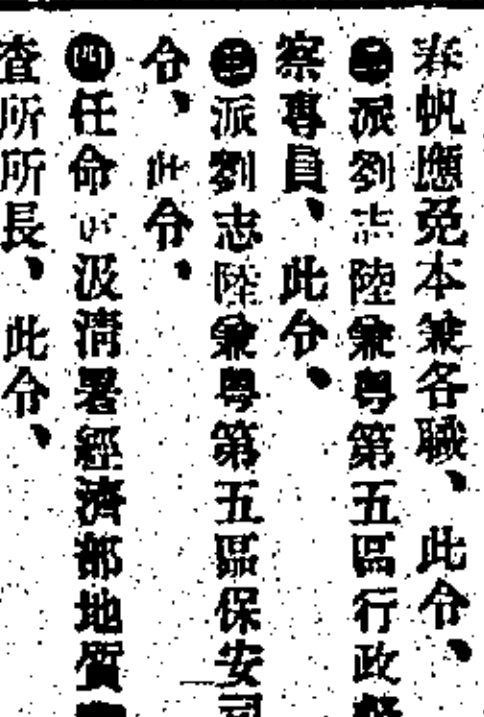 春帆應免本兼各職、此令、
㊁派劉志陸兼粵第五區行政督
察專員、此令、
㊂派劉志陸兼粵第五區保安司
令、此令、
㊃任命尹汲淸署經濟部地質
查所所長、此令、